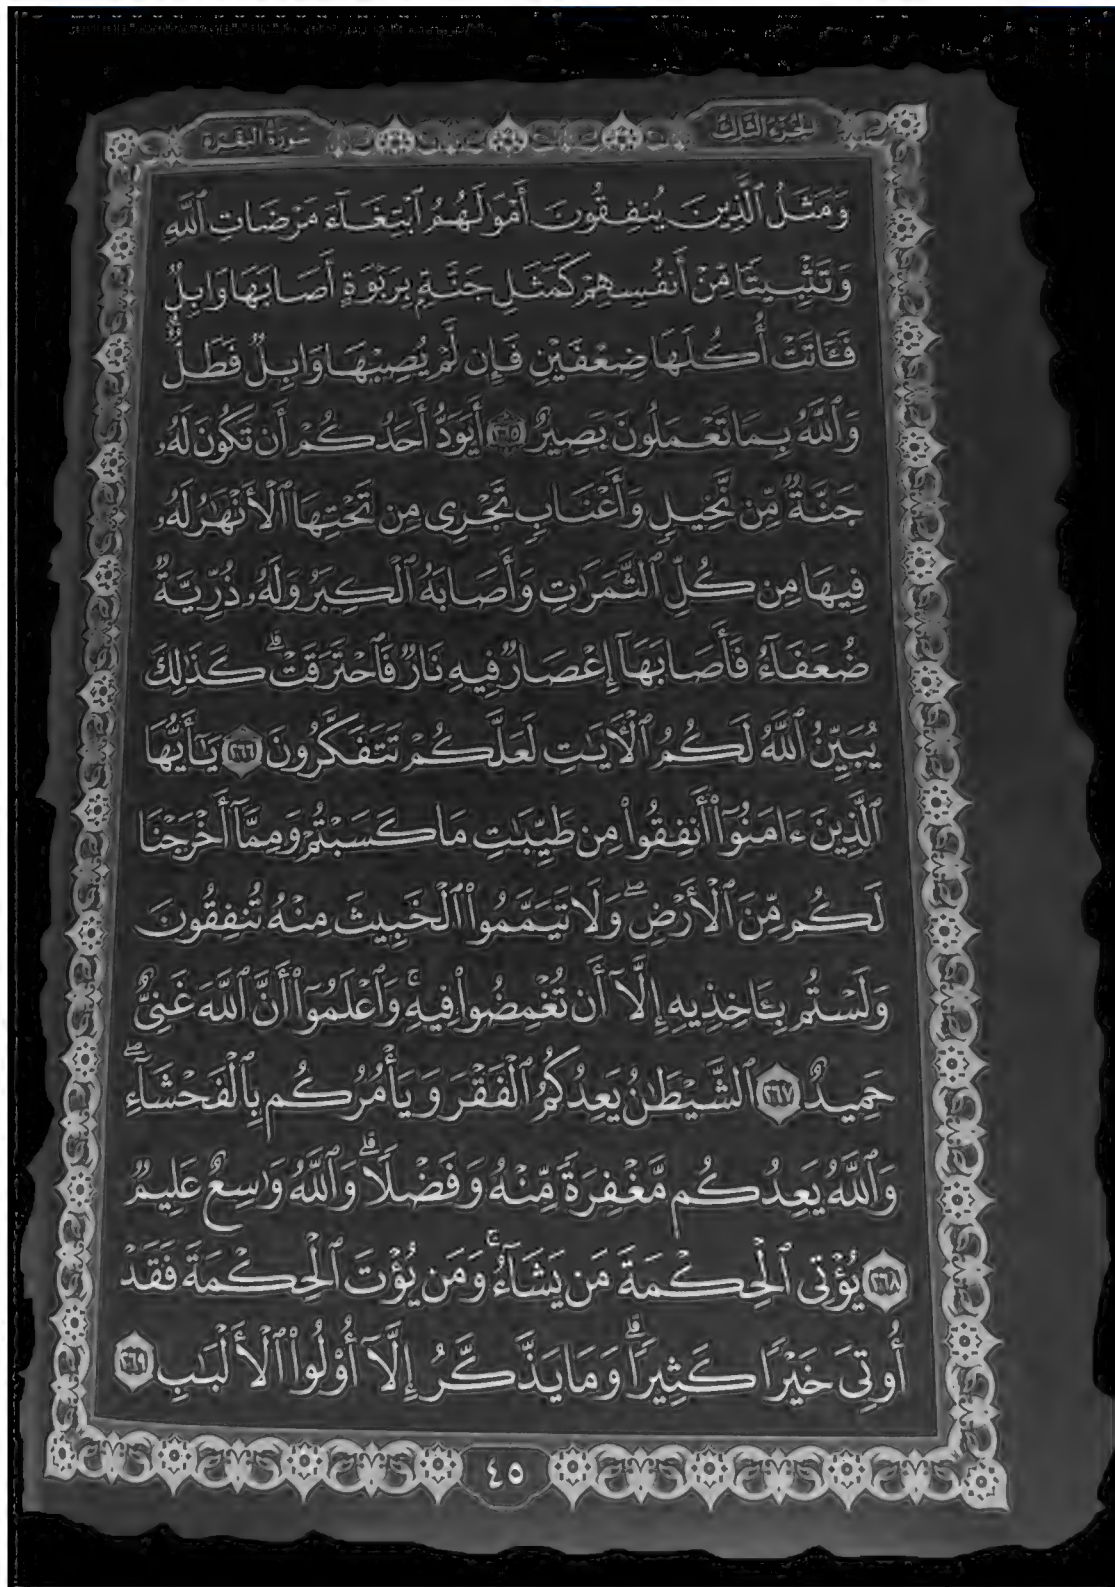 الجزء الثالث
سورة البقرة
وَمَثَلُ ٱلَّذِينَ يُنفِقُونَ أَمْوَٰلَهُمُ ٱبْتِغَآءَ مَرْضَاتِ ٱللَّهِ
وَتَثْبِيتًا مِّنْ أَنفُسِهِمْ كَمَثَلِ جَنَّةٍۭ بِرَبْوَةٍ أَصَابَهَا وَابِلٌ
فَـَٔاتَتْ أُكُلَهَا ضِعْفَيْنِ فَإِن لَّمْ يُصِبْهَا وَابِلٌ فَطَلٌّ
وَٱللَّهُ بِمَا تَعْمَلُونَ بَصِيرٌ ٢٦٥ أَيَوَدُّ أَحَدُكُمْ أَن تَكُونَ لَهُۥ
جَنَّةٌ مِّن نَّخِيلٍ وَأَعْنَابٍ تَجْرِى مِن تَحْتِهَا ٱلْأَنْهَٰرُ لَهُۥ
فِيهَا مِن كُلِّ ٱلثَّمَرَٰتِ وَأَصَابَهُ ٱلْكِبَرُ وَلَهُۥ ذُرِّيَّةٌ
ضُعَفَآءُ فَأَصَابَهَآ إِعْصَارٌ فِيهِ نَارٌ فَٱحْتَرَقَتْ ۗ كَذَٰلِكَ
يُبَيِّنُ ٱللَّهُ لَكُمُ ٱلْـَٔايَٰتِ لَعَلَّكُمْ تَتَفَكَّرُونَ ٢٦٦ يَٰٓأَيُّهَا
ٱلَّذِينَ ءَامَنُوٓا۟ أَنفِقُوا۟ مِن طَيِّبَٰتِ مَا كَسَبْتُمْ وَمِمَّآ أَخْرَجْنَا
لَكُم مِّنَ ٱلْأَرْضِ ۖ وَلَا تَيَمَّمُوا۟ ٱلْخَبِيثَ مِنْهُ تُنفِقُونَ
وَلَسْتُم بِـَٔاخِذِيهِ إِلَّآ أَن تُغْمِضُوا۟ فِيهِ ۚ وَٱعْلَمُوٓا۟ أَنَّ ٱللَّهَ غَنِىٌّ
حَمِيدٌ ٢٦٧ ٱلشَّيْطَٰنُ يَعِدُكُمُ ٱلْفَقْرَ وَيَأْمُرُكُم بِٱلْفَحْشَآءِ ۖ
وَٱللَّهُ يَعِدُكُم مَّغْفِرَةً مِّنْهُ وَفَضْلًا ۗ وَٱللَّهُ وَٰسِعٌ عَلِيمٌ
٢٦٨ يُؤْتِى ٱلْحِكْمَةَ مَن يَشَآءُ ۚ وَمَن يُؤْتَ ٱلْحِكْمَةَ فَقَدْ
أُوتِىَ خَيْرًا كَثِيرًا ۗ وَمَا يَذَّكَّرُ إِلَّآ أُو۟لُوا۟ ٱلْأَلْبَٰبِ ٢٦٩
٤٥